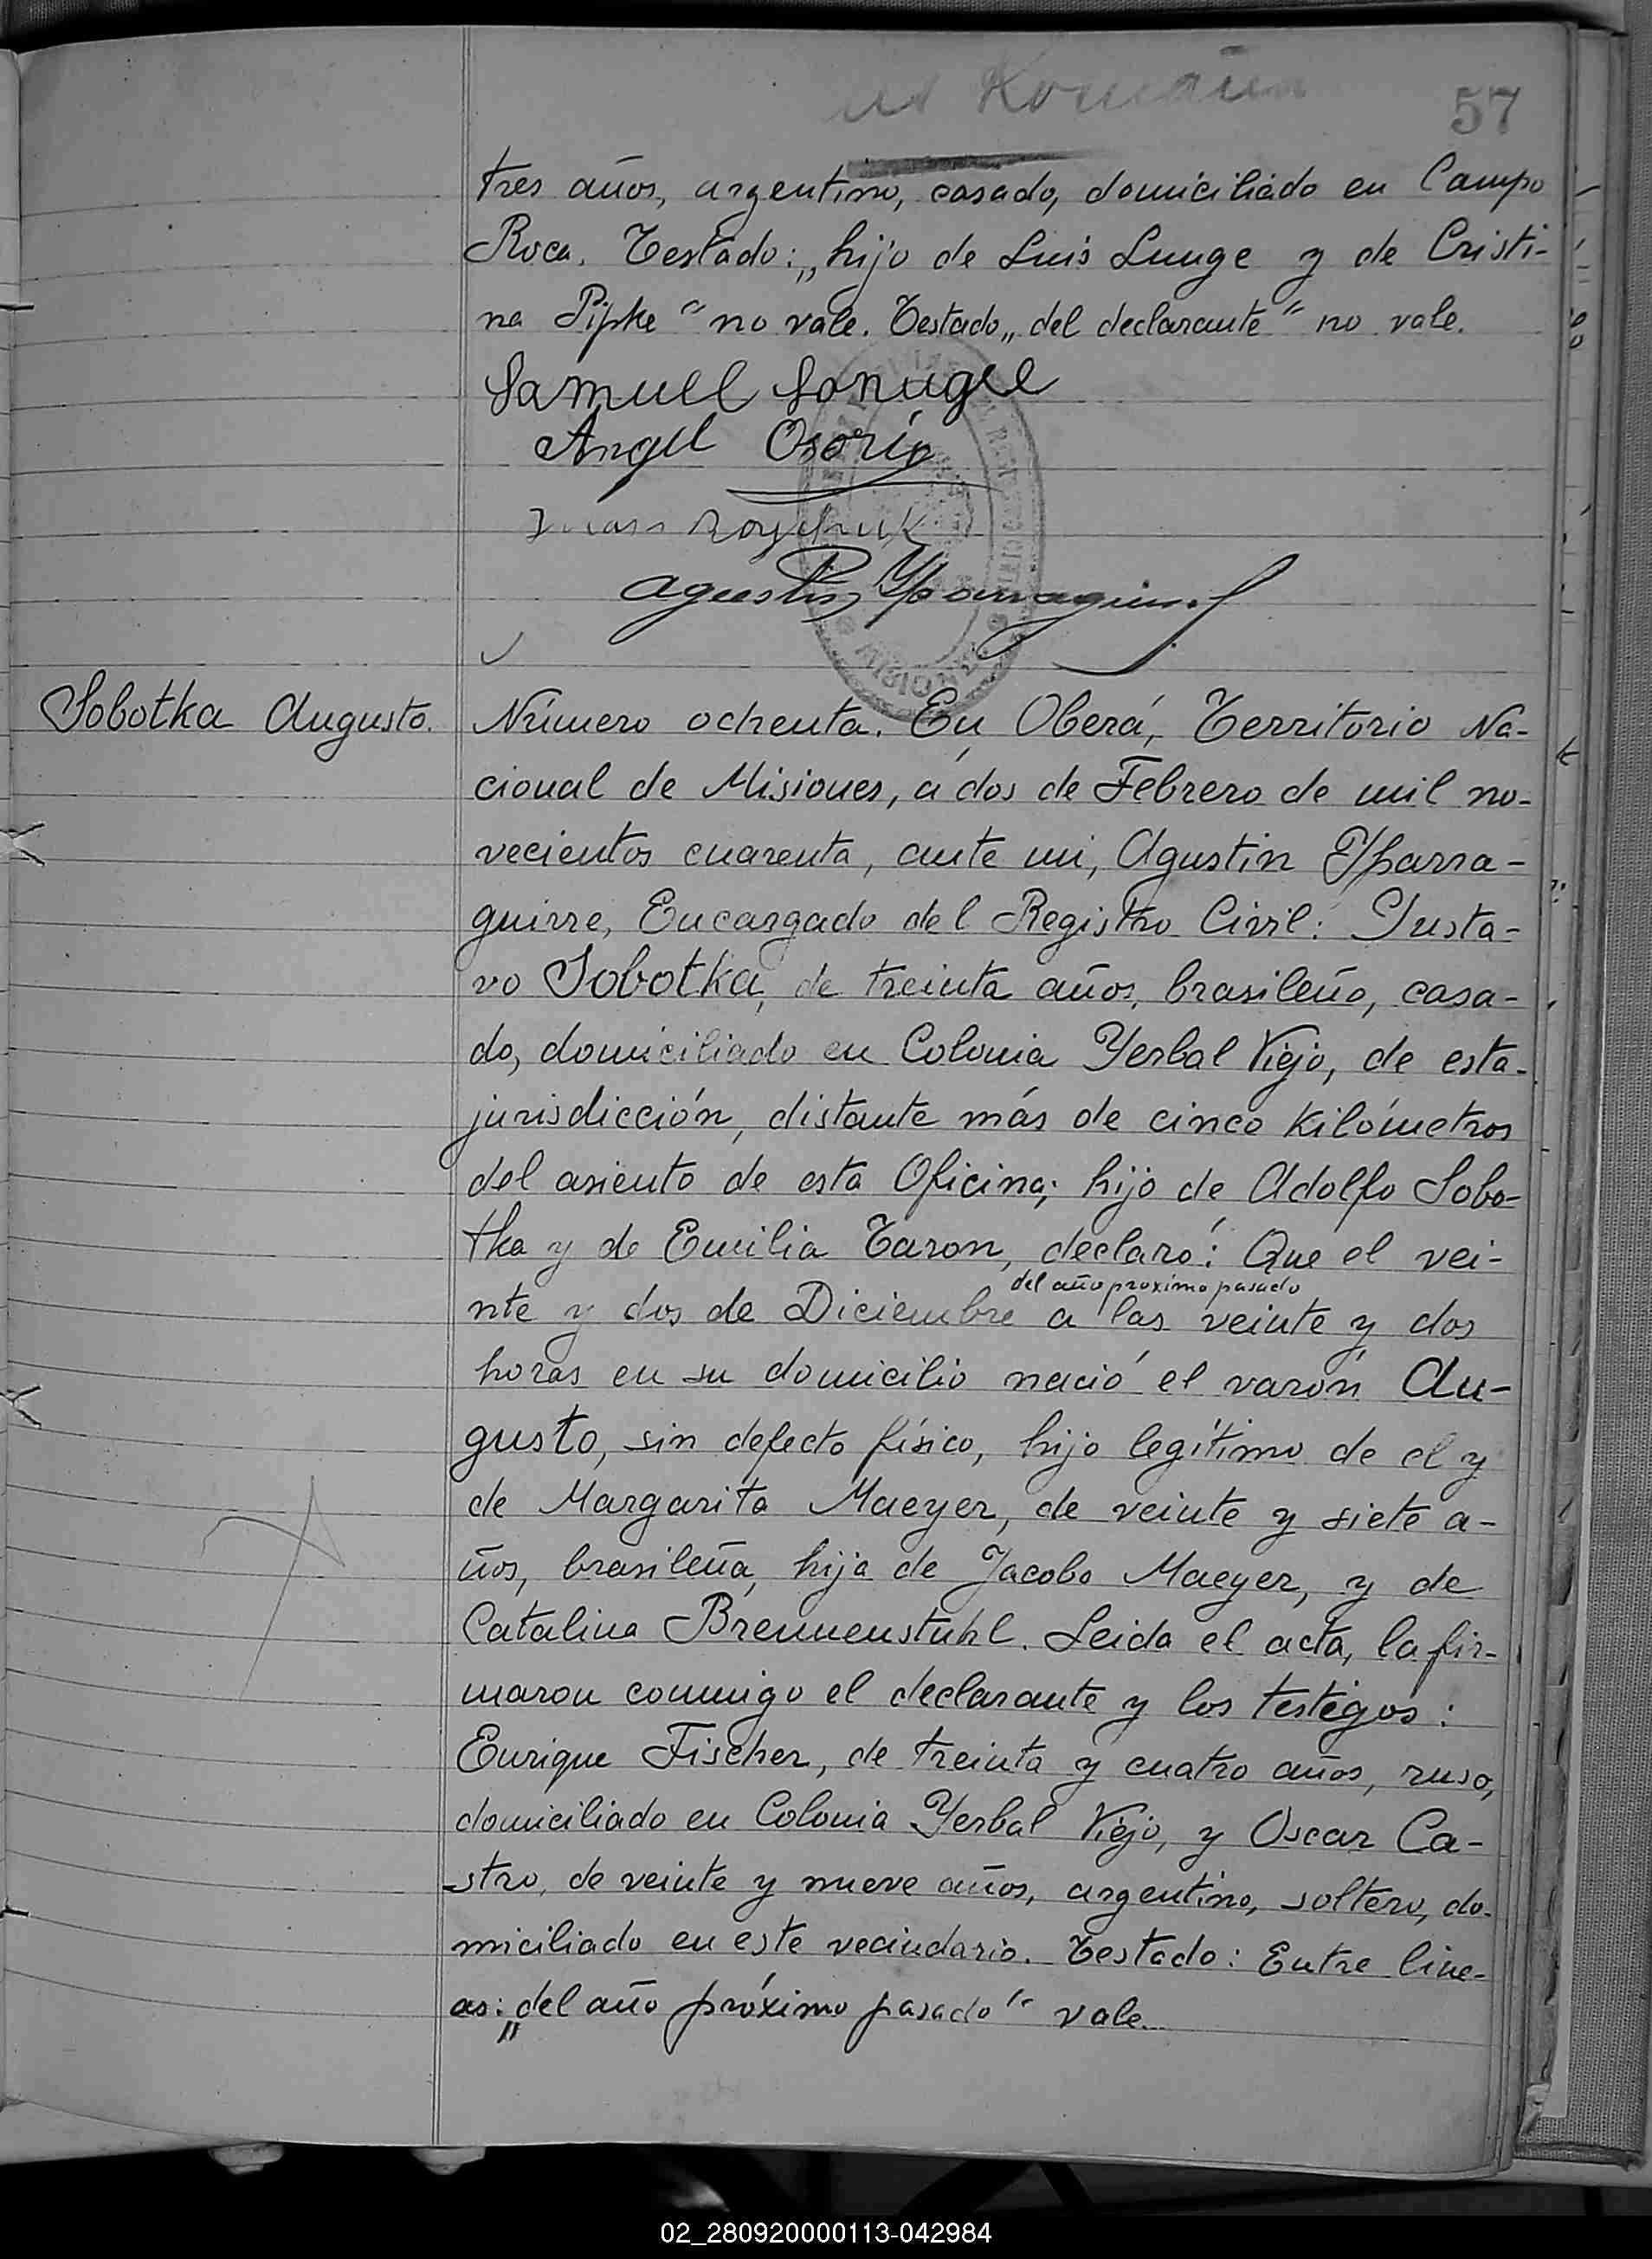 57
tres años, argentino, casado, domiciliado en Campo
Roca. Testado: „hijo de Luis Lunge y de Cristi-
na Pipke" no vale. Testado „del declarante" no vale.
Samuel
Angel Osorio
Agustin Ybarraguirre
Sobotka Augusto.
Número ochenta. En Oberá, Territorio Na-
cional de Misiones, a dos de Febrero de mil no-
vecientos cuarenta, ante mi, Agustin Ybarra-
guirre, Encargado del Registro Civil: Gusta-
vo Sobotka, de treinta años, brasileño, casa-
do, domiciliado en Colonia Yerbal Viejo, de esta
jurisdicción, distante más de cinco kilómetros
del asiento de esta Oficina; hijo de Adolfo Sobo-
tka y de Emilia Taron, declaró: Que el vei-
del año proximo pasado
nte y dos de Diciembre a las veinte y dos
horas en su domicilio nació el varón Au-
gusto, sin defecto físico, hijo legítimo de el y
de Margarita Maeyer, de veinte y siete a-
ños, brasileña, hija de Jacobo Maeyer, y de
Catalina Brennenstuhl. Leida el acta, la fir-
maron conmigo el declarante y los testigos:
Enrique Fischer, de treinta y cuatro años, ruso,
domiciliado en Colonia Yerbal Viejo, y Oscar Ca-
stro, de veinte y nueve años, argentino, soltero, do-
miciliado en este vecindario. Testado: Entre line-
as: „del año próximo pasado" vale.
MISIONES
02_280920000113-042984